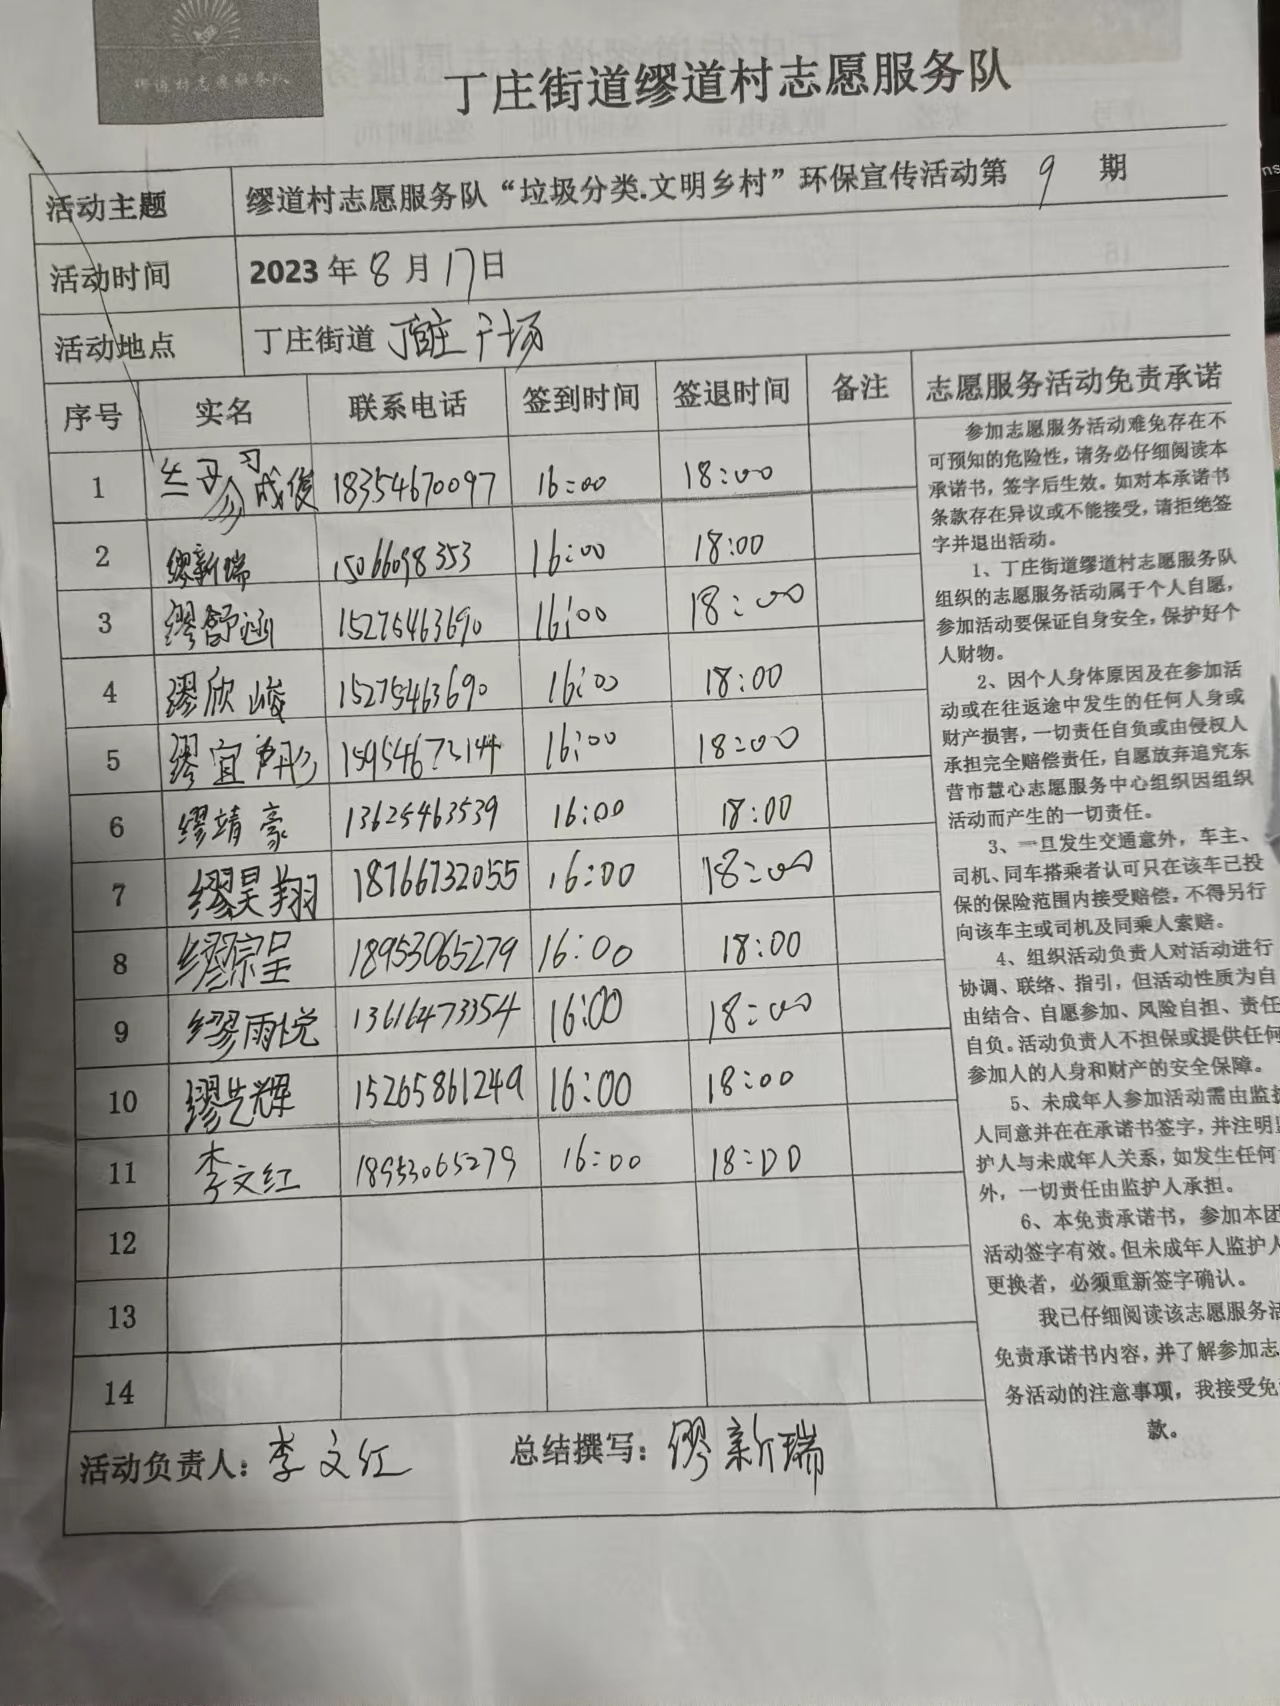 缪道村志愿服务队
丁庄街道缪道村志愿服务队
活动主题 缪道村志愿服务队“垃圾分类.文明乡村”环保宣传活动第 9 期
活动时间 2023 年 8 月 17日
活动地点 丁庄街道 丁庄广场
序号 实名 联系电话 签到时间 签退时间 备注
1 缪成俊 18354670097 16:00 18:00
2 缪新瑞 15066098353 16:00 18:00
3 缪舒涵 15275463690 16:00 18:00
4 缪欣峻 15275463690 16:00 18:00
5 缪宜彤 15954673144 16:00 18:00
6 缪靖豪 13625463539 16:00 18:00
7 缪昊翔 18766732055 16:00 18:00
8 缪宗呈 18953065279 16:00 18:00
9 缪雨悦 13616473354 16:00 18:00
10 缪先辉 15265861249 16:00 18:00
11 李文红 18953065279 16:00 18:00
12
13
14
志愿服务活动免责承诺
参加志愿服务活动难免存在不
可预知的危险性,请务必仔细阅读本
承诺书,签字后生效。如对本承诺书
条款存在异议或不能接受,请拒绝签
字并退出活动。
1、丁庄街道缪道村志愿服务队
组织的志愿服务活动属于个人自愿,
参加活动要保证自身安全,保护好个
人财物。
2、因个人身体原因及在参加活
动或在往返途中发生的任何人身或
财产损害,一切责任自负或由侵权人
承担完全赔偿责任,自愿放弃追究东
营市慧心志愿服务中心组织因组织
活动而产生的一切责任。
3、一旦发生交通意外,车主、
司机、同车搭乘者认可只在该车已投
保的保险范围内接受赔偿,不得另行
向该车主或司机及同乘人索赔。
4、组织活动负责人对活动进行
协调、联络、指引,但活动性质为自
由结合、自愿参加、风险自担、责任
自负。活动负责人不担保或提供任何
参加人的人身和财产的安全保障。
5、未成年人参加活动需由监护
人同意并在在承诺书签字,并注明监
护人与未成年人关系,如发生任何
外,一切责任由监护人承担。
6、本免责承诺书,参加本团
活动签字有效。但未成年人监护人
更换者,必须重新签字确认。
我已仔细阅读该志愿服务活
免责承诺书内容,并了解参加志
务活动的注意事项,我接受免
款。
活动负责人:李文红 总结撰写:缪新瑞